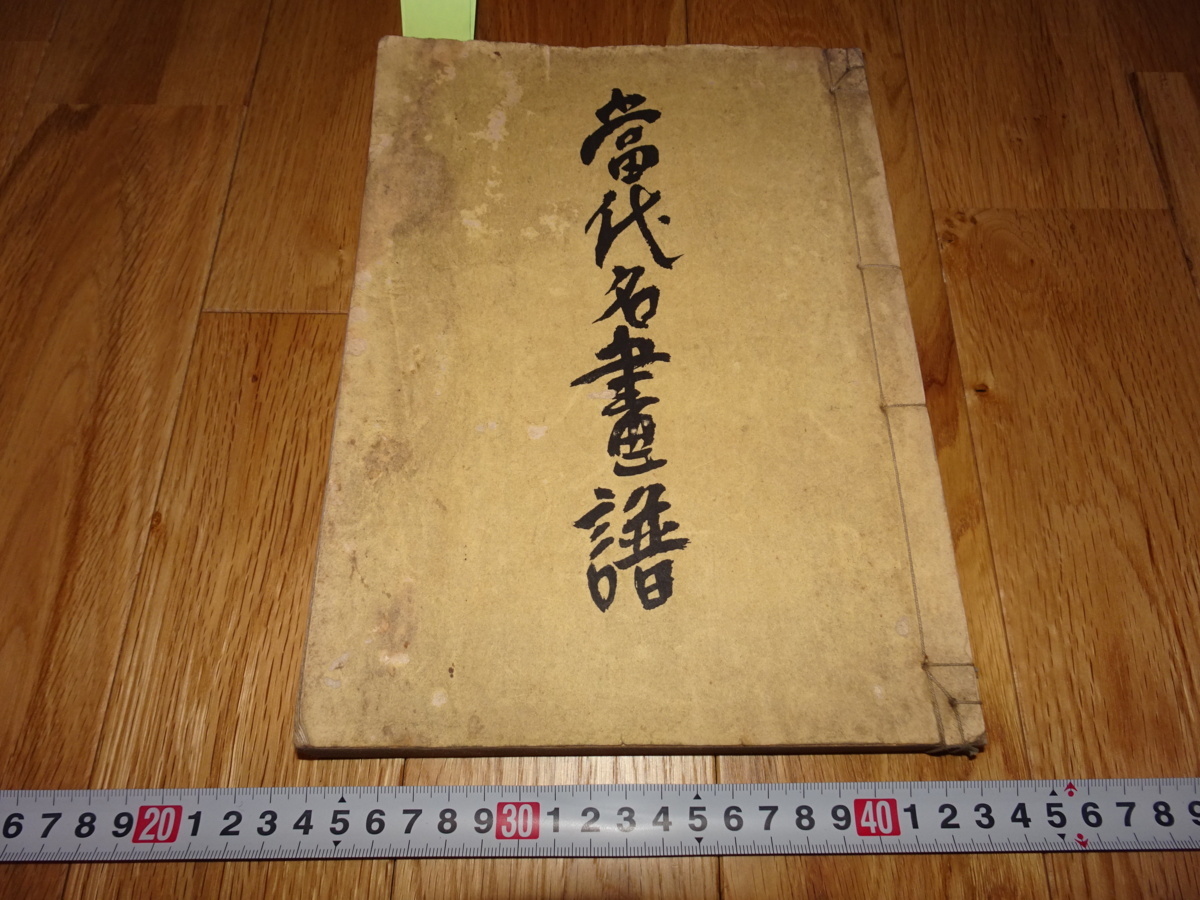 當代名畫譜
6 7 8 9 20 1 2 3 4 5 6 7 8 9 30 1 2 3 4 5 6 7 8 9 40 1 2 3 4 5 6 7 8 9